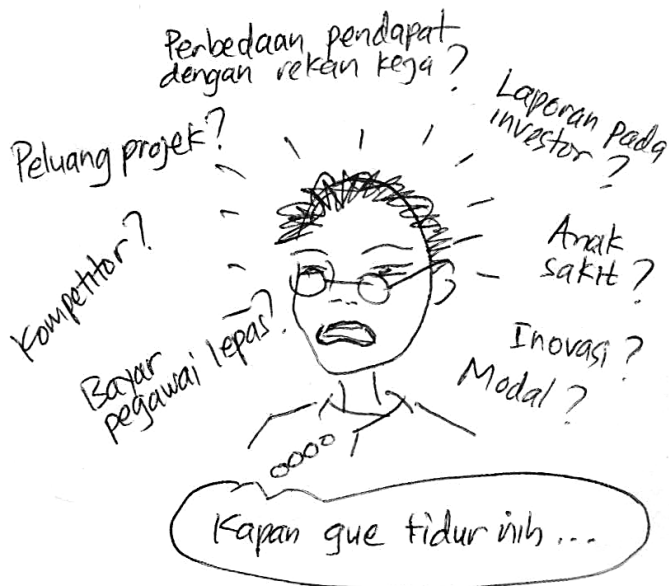 Perbedaan pendapat
dengan rekan keja?
Laporan pada
investor?
Peluang projek?
Anak
sakit?
Kompetitor?
Inovasi?
Bayar
pegawai lepas?
Modal?
Kapan gue tidur nih...